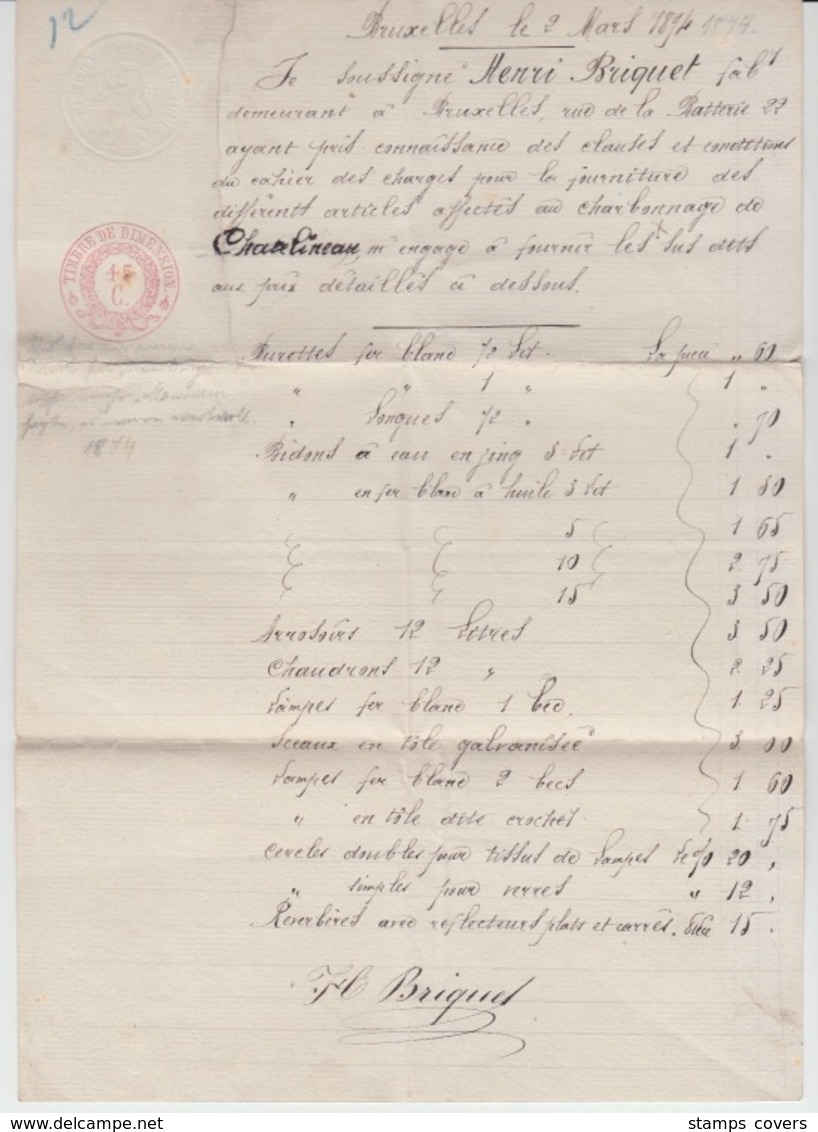 12
Bruxelles le 2 Mars 1874 1874.
Je soussigné Henri Briquet fabt
demeurant à Bruxelles, rue de la Batterie 22
ayant pris connaissance des clauses et conditions
du cahier des charges pour la fourniture des
différents articles affectés au charbonnage de
m'engage à fournir les sus dits
aux prix détaillés ci dessous.
TIMBRE DE DIMENSION.
45
C.
Monsieur
1874
Burettes fer blanc 1/2 Lit. La pièce " 60
" " 1 " 1 "
" Longues 1/2 " " 70
Bidons à eau en zinc 3 Lit 1 "
" en fer blanc à huile 3 Lit 1 50
5 1 65
10 2 75
15 3 50
Arrosoirs 12 Litres 3 50
Chaudrons 12 " 2 25
Lampes fer blanc 1 bec. 1 25
Sceaux en tôle galvanisée 3 00
Lampes fer blanc 2 becs 1 60
" en tôle dite crochet 1 75
Cercles doubles pour tissus de Lampes Le % 20 "
" simples pour verres " 12 "
Réverbères avec reflecteurs plats et carrés. 15 "
H Briquet
stamps covers